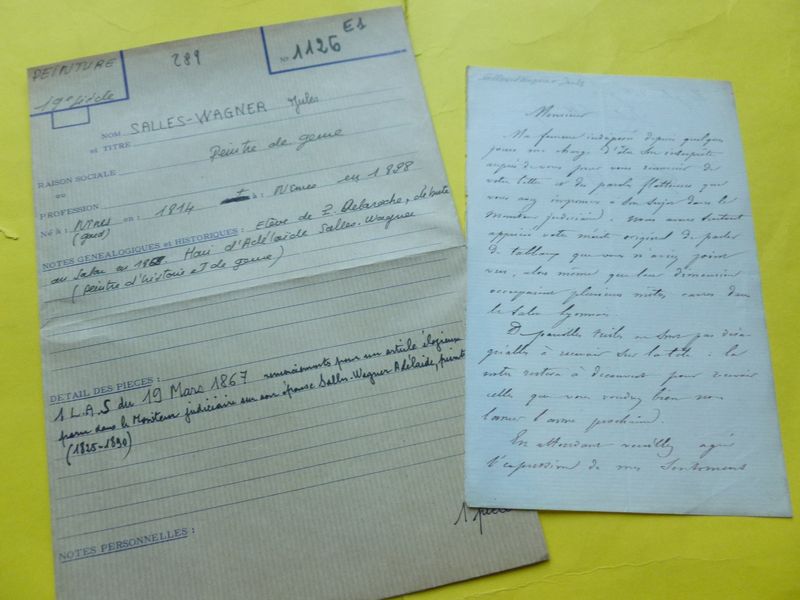 PEINTURE
289
N° 1126 E1
19e Siècle
NOM SALLES-WAGNER Jules
et TITRE
RAISON SOCIALE Peintre de genre
ou
PROFESSION
Né à : Nîmes en : 1814 + à : Nîmes en 1898
(gard)
NOTES GENEALOGIQUES et HISTORIQUES : Elève de P. Delaroche, débute
au Salon en Mari d'Adélaïde Salles-Wagner
(Peintre d'histoire et de genre)
DETAIL DES PIECES :
1 L.A.S du 19 Mars 1867 remerciements pour un article élogieux
paru dans le Moniteur judiciaire sur son épouse Salles-Wagner Adélaïde, peintre
(1825-1890)
1 pièce
NOTES PERSONNELLES :
Salles-Wagner Jules
Monsieur
Ma femme indisposée depuis quelques
jours me charge d'être son interprète
auprès de vous pour vous remercier de
votre lettre et des paroles flatteuses que
vous avez imprimées à son sujet dans le
Moniteur judiciaire. Nous avons surtout
apprécié votre mérite original de parler
de tableaux que vous n'avez point
vus, alors même que leur dimension
occupaient plusieurs mètres carrés dans
le Salon Lyonnais.
De pareilles tuiles on n'est pas
à recevoir sur la tête : la
nôtre restera à découvert pour recevoir
celle que vous voudrez bien nous
lancer l'année prochaine.
En attendant veuillez agréer
l'expression de mes Sentiments